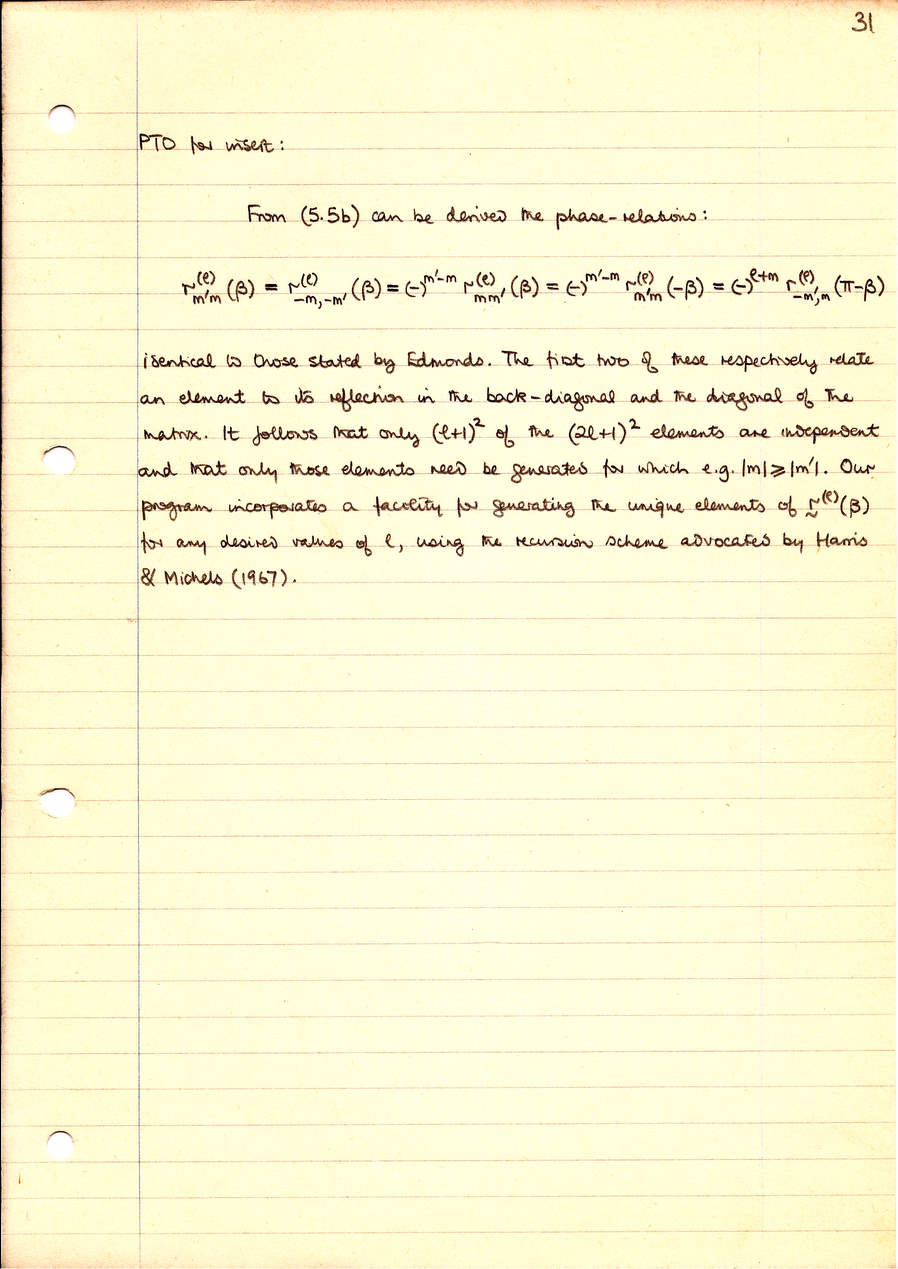 31
PTO for insert:
From (5.5b) can be derived the phase-relations:
r^{(ℓ)}_{m'm}(β) = r^{(ℓ)}_{-m,-m'}(β) = (-)^{m'-m} r^{(ℓ)}_{mm'}(β) = (-)^{m'-m} r^{(ℓ)}_{m'm}(-β) = (-)^{ℓ+m} r^{(ℓ)}_{-m',m}(π-β)
identical to those stated by Edmonds. The first two of these respectively relate
an element to its reflection in the back-diagonal and the diagonal of the
matrix. It follows that only (ℓ+1)² of the (2ℓ+1)² elements are independent
and that only those elements need be generated for which e.g. |m|≥|m'|. Our
program incorporates a facility for generating the unique elements of r^{(ℓ)}(β)
for any desired values of ℓ, using the recursion scheme advocated by Harris
& Michels (1967).